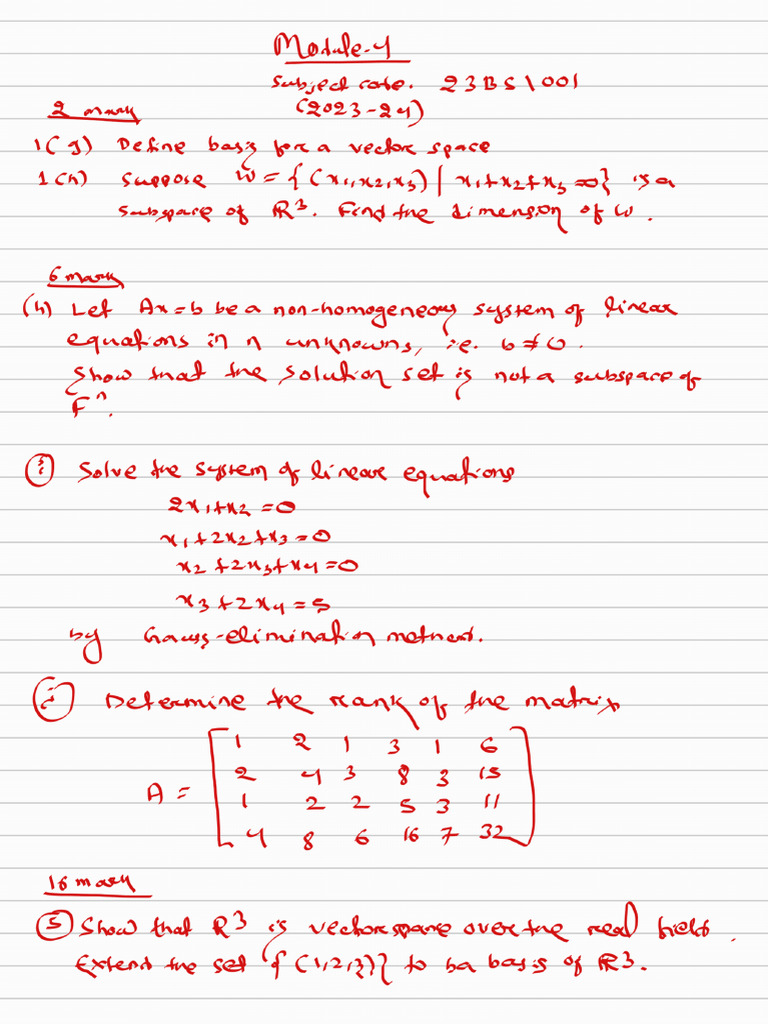 Module-4
Subject code. 23BS1001
(2023-24)
2 mark
1(g) Define basis for a vector space
1(h) Suppose W = {(x1,x2,x3) | x1+x2+x3=0} is a
subspace of R3. Find the dimension of W.
6 mark
(h) Let Ax=b be a non-homogeneous system of linear
equations in n unknowns, i.e. b≠0.
Show that the solution set is not a subspace of
F^n.
(i) Solve the system of linear equations
2x1+x2=0
x1+2x2+x3=0
x2+2x3+x4=0
x3+2x4=5
by Gauss-elimination method.
Determine the rank of the matrix
1 2 1 3 1 6
2 4 3 8 3 15
A = 1 2 2 5 3 11
4 8 6 16 7 32
16 mark
(5) Show that R3 is vector space over the real field.
Extend the set {(1,2,3)} to ba basis of R3.